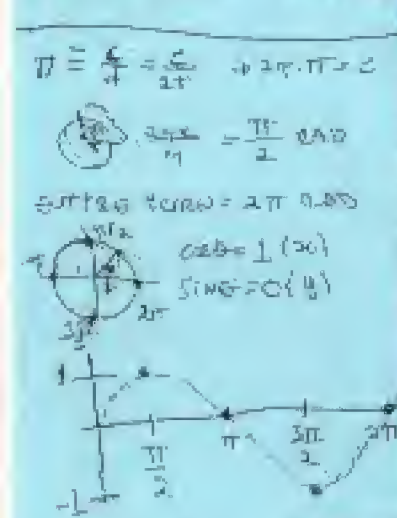 π = C/d = C/2r → 2r·π = C
2πr/4 = π/2 RAD
ENTIRE = 2π RAD
π/2
π 2π
3π/2
COSθ = 1 (x)
SINθ = 0 (y)
1
π/2 π 3π/2 2π
-1